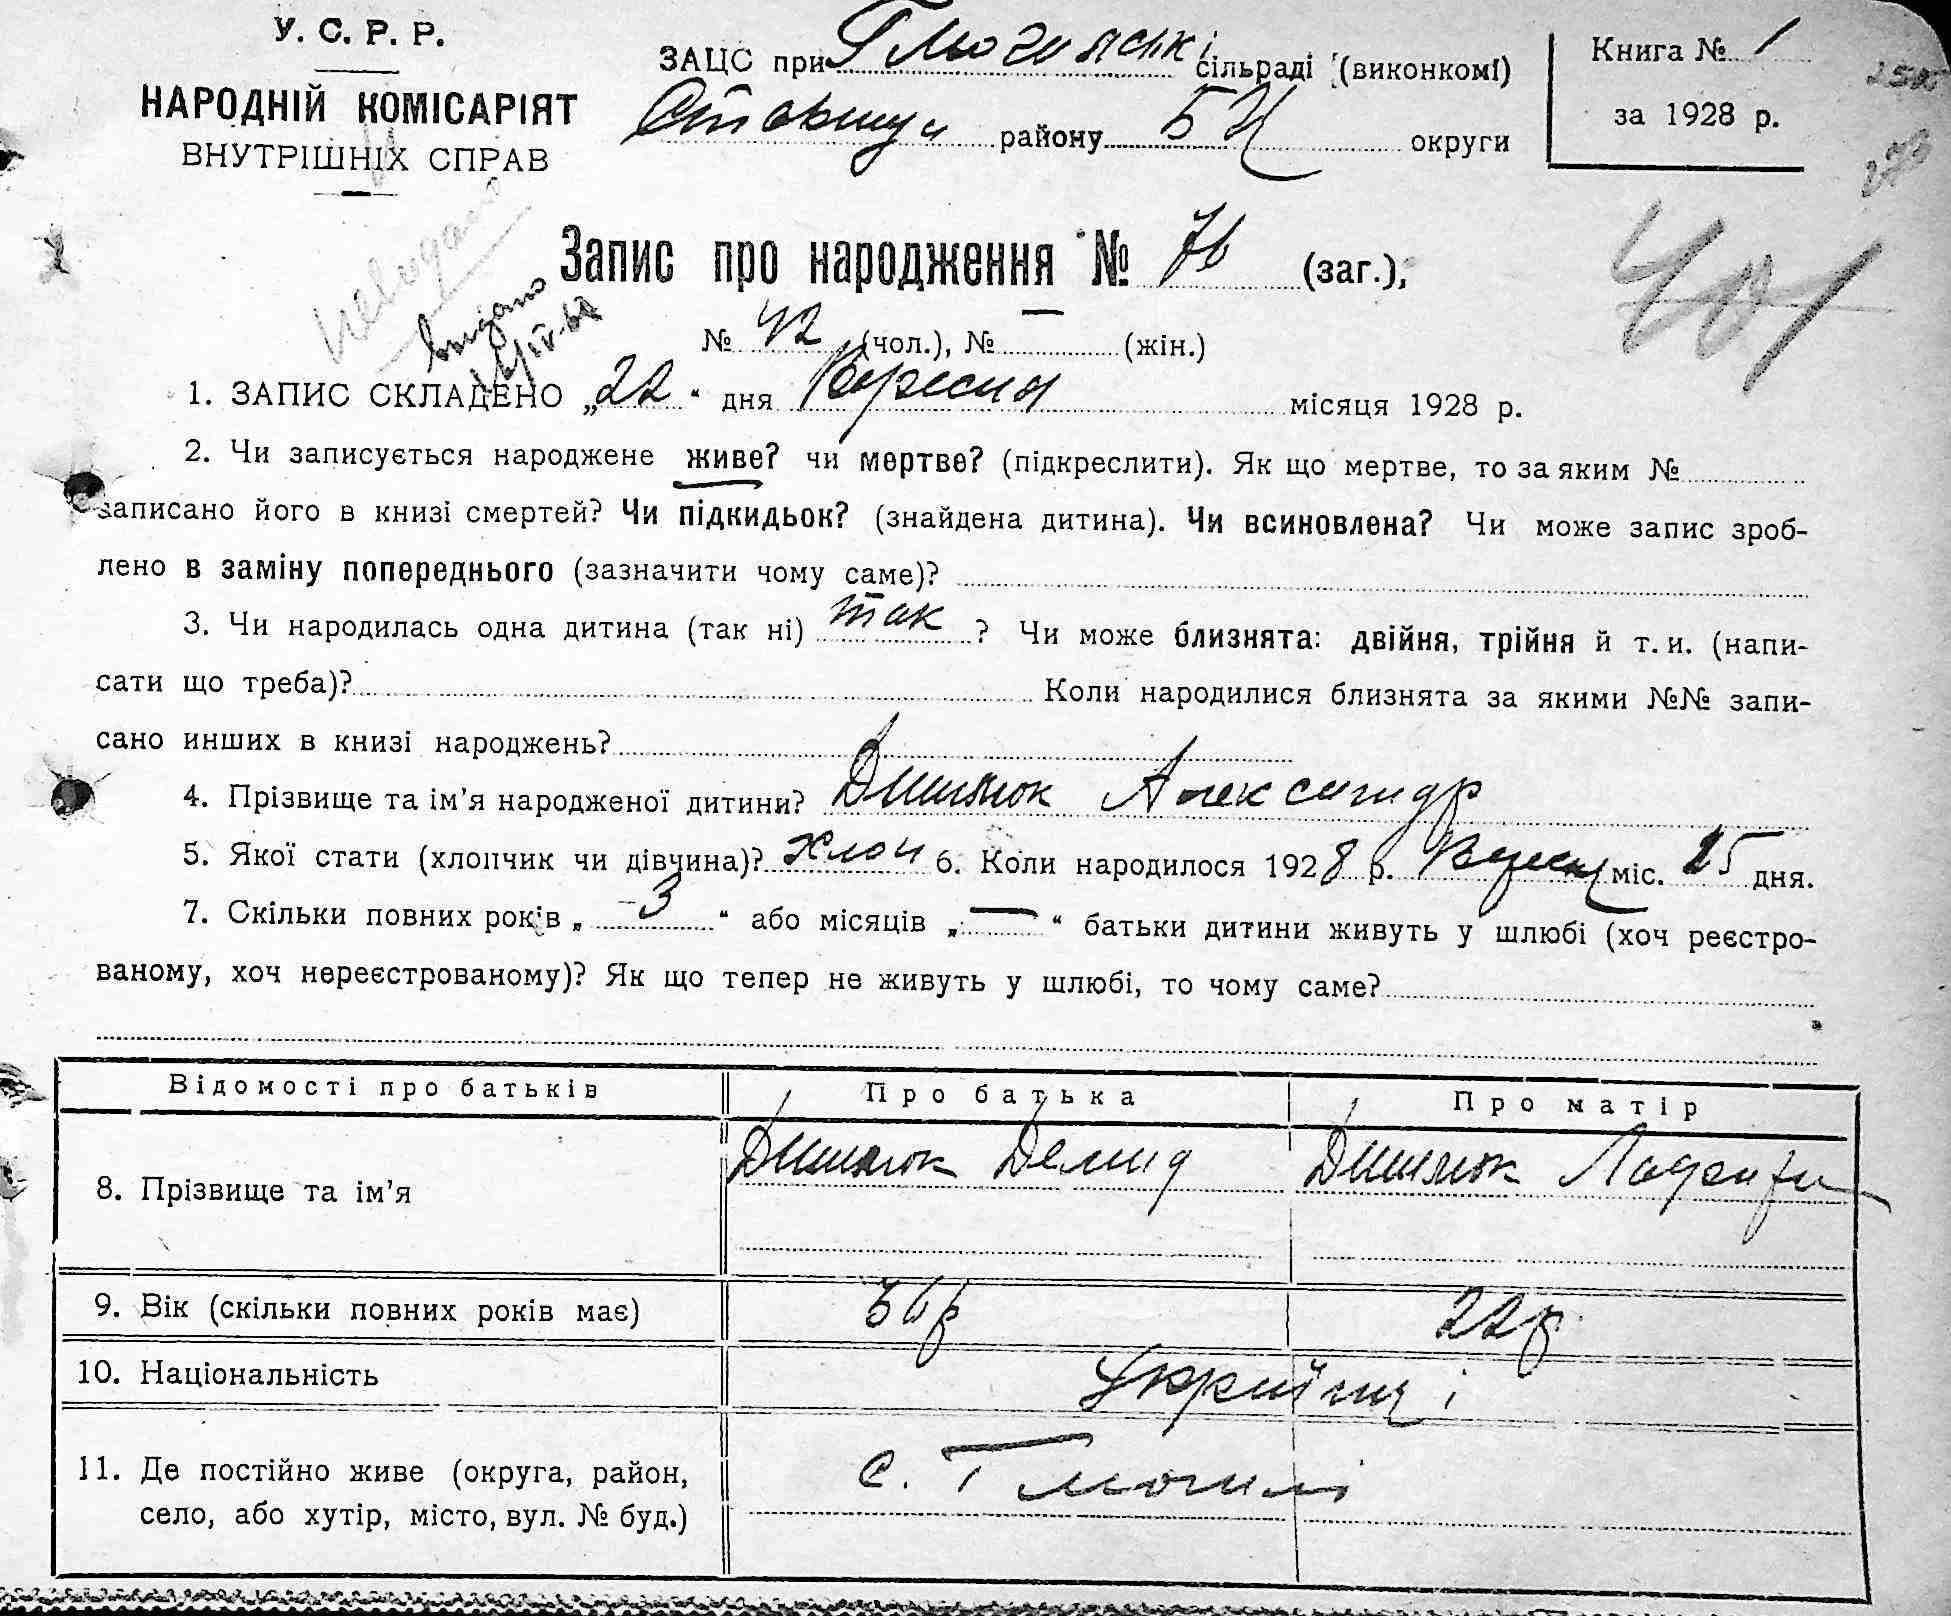 У. С. Р. Р.
НАРОДНІЙ КОМІСАРІЯТ
ВНУТРІШНІХ СПРАВ
ЗАЦС при сільраді (виконкомі)
району БЦ округи
Книга № 1
за 1928 р.
401
невидано
видано
Запис про народження № 76 (заг.),
№ 42 (чол.), № — (жін.)
1. ЗАПИС СКЛАДЕНО „22" дня Вересня місяця 1928 р.
2. Чи записується народжене живе? чи мертве? (підкреслити). Як що мертве, то за яким №
записано його в книзі смертей? Чи підкидьок? (знайдена дитина). Чи всиновлена? Чи може запис зроб-
лено в заміну попереднього (зазначити чому саме)?
3. Чи народилась одна дитина (так ні) так ? Чи може близнята: двійня, трійня й т. и. (напи-
сати що треба)? Коли народилися близнята за якими №№ запи-
сано инших в книзі народжень?
4. Прізвище та ім'я народженої дитини? Александр
5. Якої стати (хлопчик чи дівчина)? хлоп 6. Коли народилося 1928 р. Вересня міс. 15 дня.
7. Скільки повних років „ 3 " або місяців „ — " батьки дитини живуть у шлюбі (хоч реєстро-
ваному, хоч нереєстрованому)? Як що тепер не живуть у шлюбі, то чому саме?
Відомості про батьків Про батька Про матір
8. Прізвище та ім'я Демид
9. Вік (скільки повних років має) 36р 22р
10. Національність Українці
11. Де постійно живе (округа, район,
село, або хутір, місто, вул. № буд.)
с.